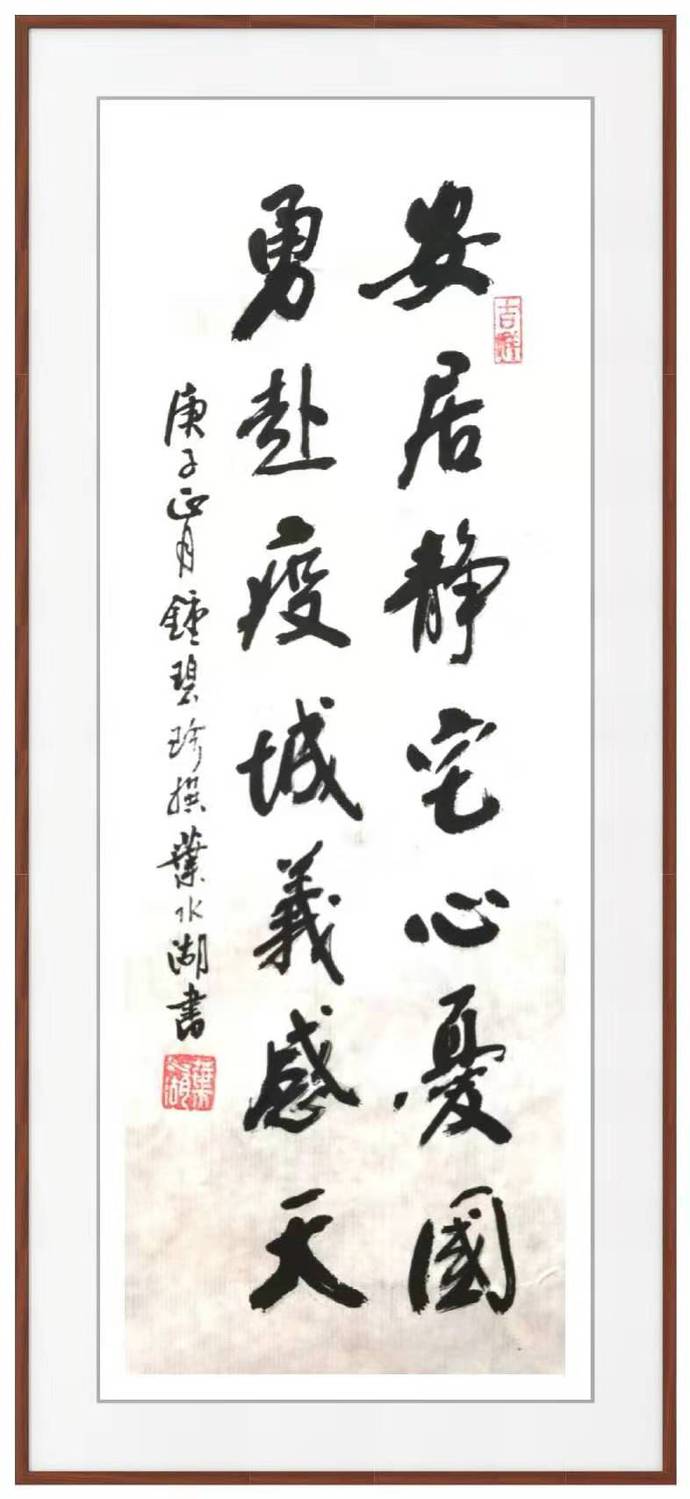 安居静宅心憂國
吉祥
勇赴疫城義感天
庚子正月鍾碧珍撰葉水湖書
葉水湖